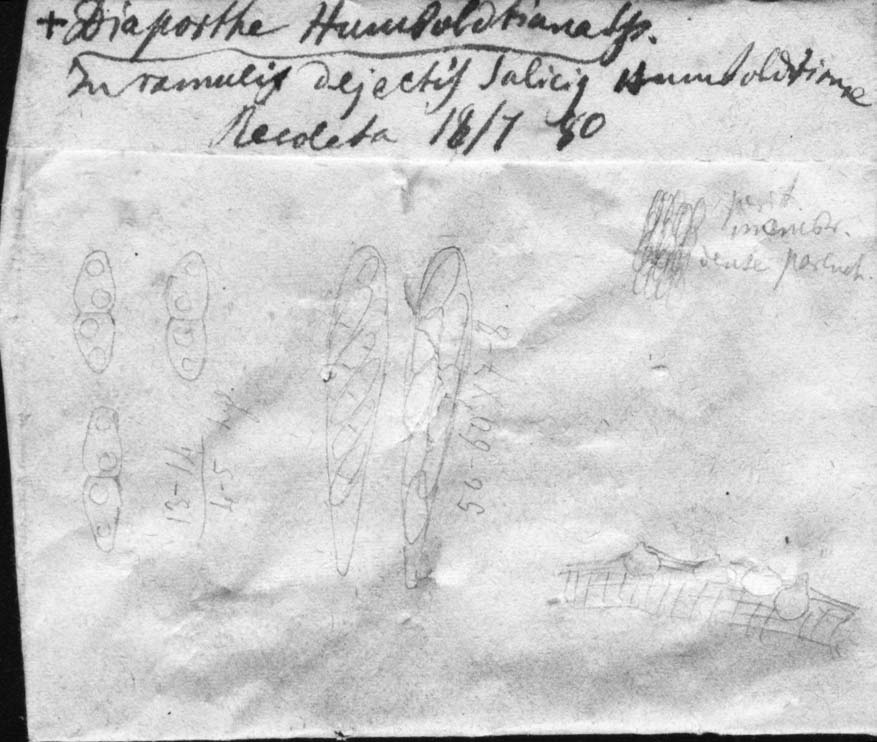 + Diaporthe Humboldtiana Sp.
In ramulis dejectis Salicis Humboldtianæ
Recoleta 18/7 80
perit.
membr.
dense parench.
56-60 × 7-8
13-14
4-5 hy.